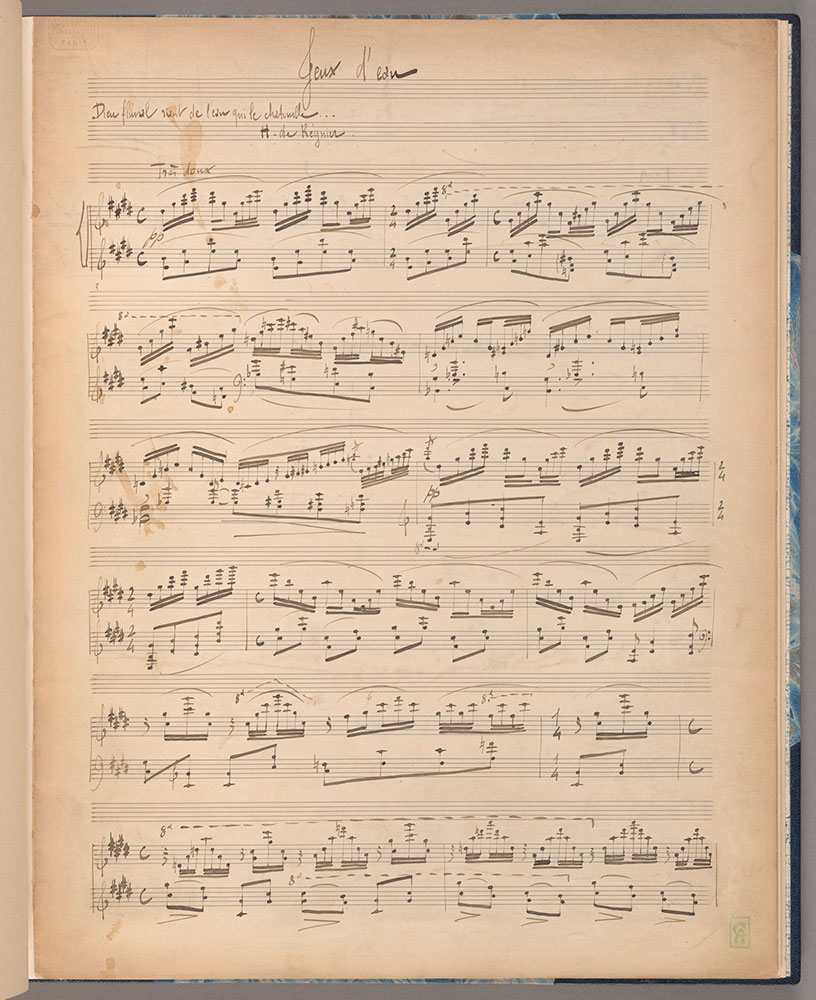 Jeux d'eau
Dieu fluvial riant de l'eau qui le chatouille...
H. de Régnier.
Très doux
8ª
pp
8ª
pp
8ª
8ª
6
8ª
8ª
8ª